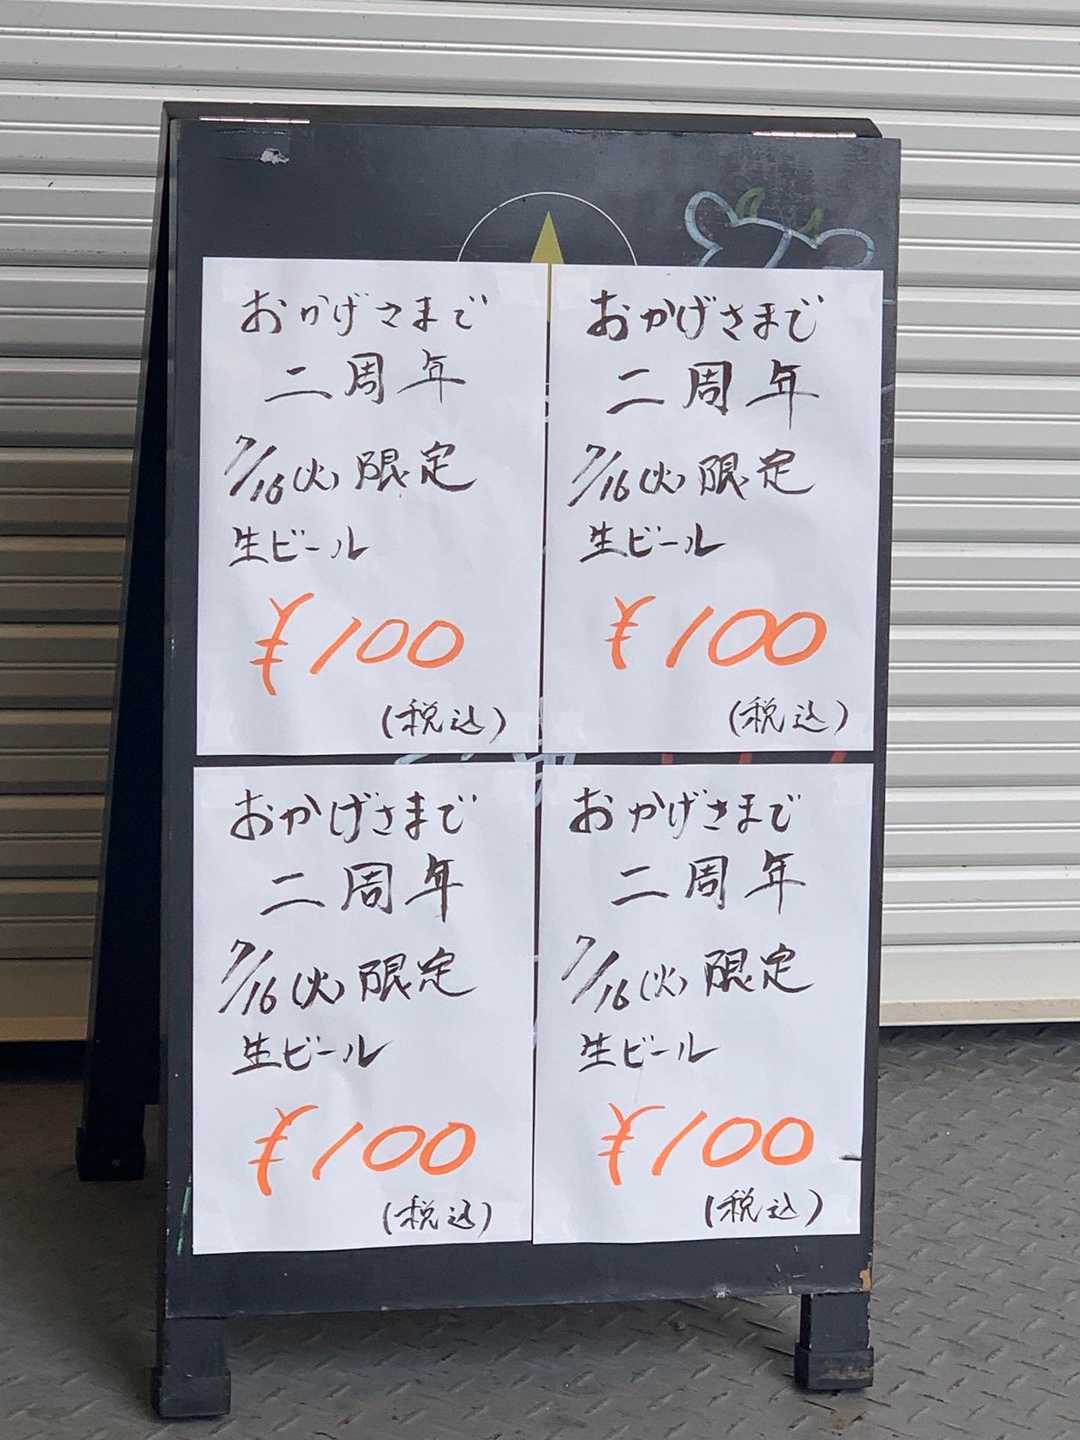 おかげさまで
二周年
7/16(火)限定
生ビール
¥100
(税込)
おかげさまで
二周年
7/16(火)限定
生ビール
¥100
(税込)
おかげさまで
二周年
7/16(火)限定
生ビール
¥100
(税込)
おかげさまで
二周年
7/16(火)限定
生ビール
¥100
(税込)